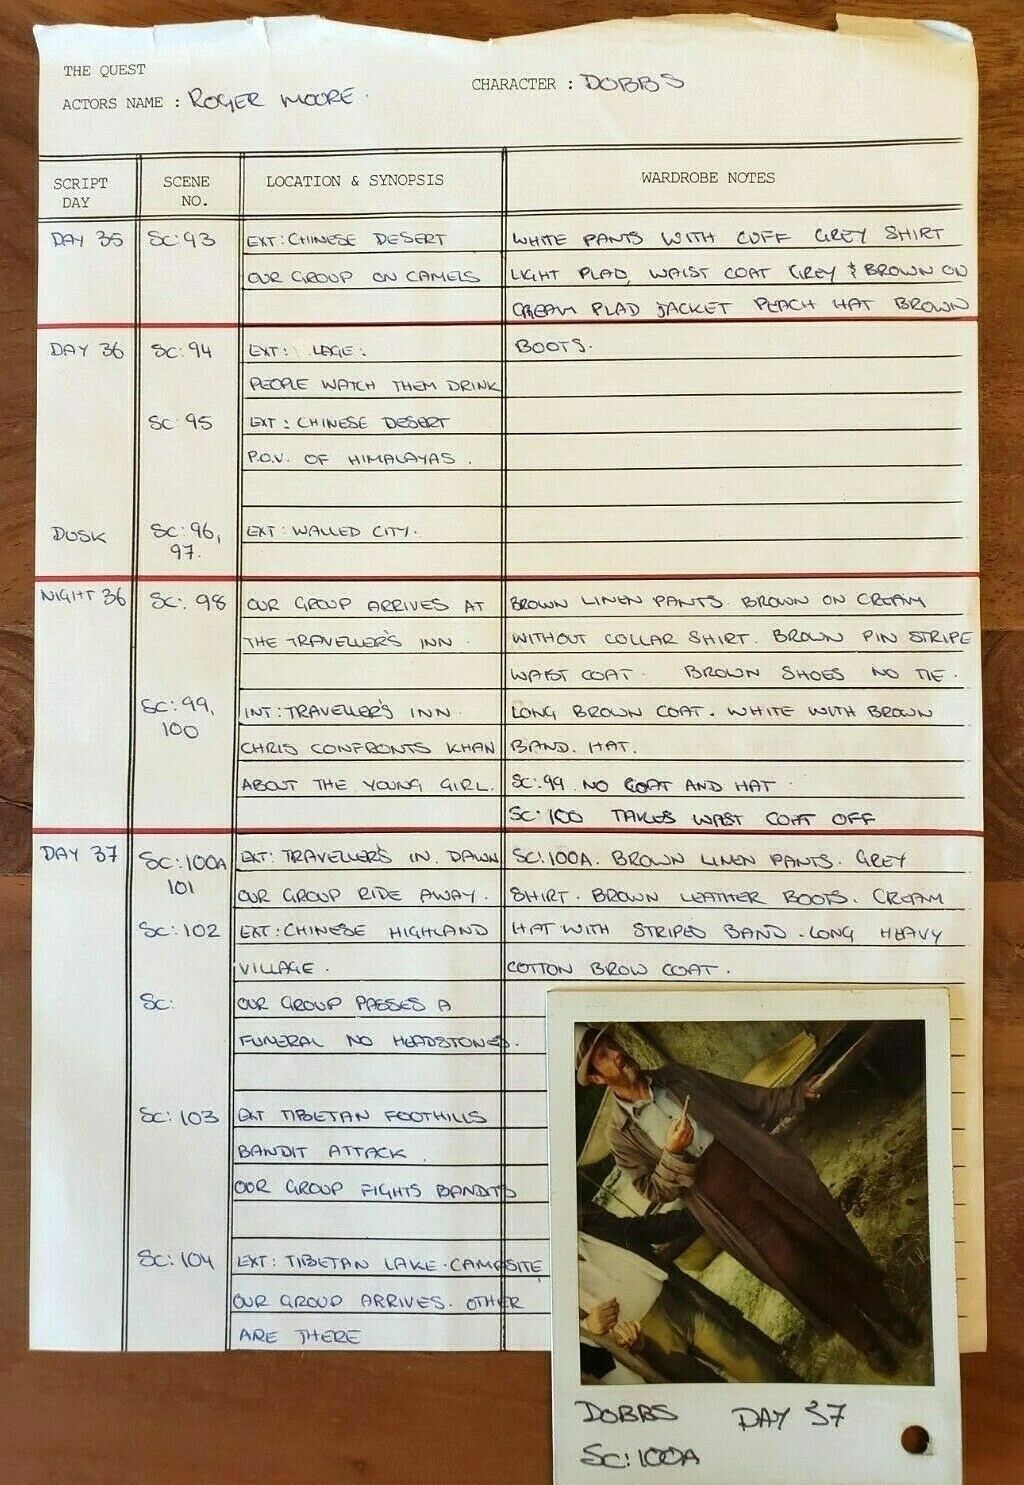 THE QUEST
ACTORS NAME : ROGER MOORE.
CHARACTER : DOBBS
SCRIPT DAY
SCENE NO.
LOCATION & SYNOPSIS
WARDROBE NOTES
DAY 35 SC: 93 EXT: CHINESE DESERT WHITE PANTS WITH CUFF GREY SHIRT
OUR GROUP ON CAMELS LIGHT PLAD, WAIST COAT GREY & BROWN ON
CREAM PLAD JACKET PEACH HAT BROWN
DAY 36 SC: 94 EXT: LAGE: BOOTS.
PEOPLE WATCH THEM DRINK
SC: 95 EXT: CHINESE DESERT
P.O.V. OF HIMALAYAS.
DUSK SC: 96, EXT: WALLED CITY.
97.
NIGHT 36 SC: 98 OUR GROUP ARRIVES AT BROWN LINEN PANTS. BROWN ON CREAM
THE TRAVELLER'S INN. WITHOUT COLLAR SHIRT. BROWN PIN STRIPE
WAIST COAT. BROWN SHOES NO TIE.
SC: 99, INT: TRAVELLER'S INN. LONG BROWN COAT. WHITE WITH BROWN
100 CHRIS CONFRONTS KHAN BAND. HAT.
ABOUT THE YOUNG GIRL. SC: 99. NO COAT AND HAT.
SC: 100 TAKES WAST COAT OFF
DAY 37 SC: 100A EXT: TRAVELLER'S IN. DAWN SC: 100A. BROWN LINEN PANTS. GREY
101 OUR GROUP RIDE AWAY. SHIRT. BROWN LEATHER BOOTS. CREAM
SC: 102 EXT: CHINESE HIGHLAND HAT WITH STRIPED BAND. LONG HEAVY
VILLAGE. COTTON BROW COAT.
SC: OUR GROUP PASSES A
FUNERAL NO HEADSTONES.
SC: 103 EXT TIBETAN FOOTHILLS
BANDIT ATTACK.
OUR GROUP FIGHTS BANDITS
SC: 104 EXT: TIBETAN LAKE. CAMPSITE,
OUR GROUP ARRIVES. OTHER
ARE THERE
DOBBS DAY 37
SC: 100A